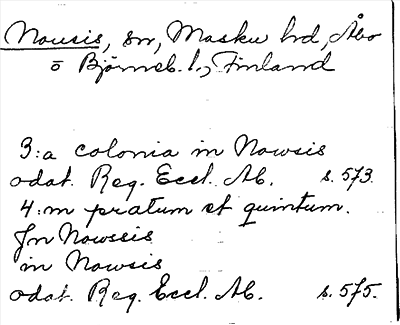 Nousis, sn, Masku hd, Åbo
o Björneb. l., Finland
3:a colonia in Nowsis
odat. Reg. Eccl. Ab. s. 573.
4:m pratum et quintum.
Jn Nowssis
in Nowsis
odat. Reg. Eccl. Ab. s. 575.